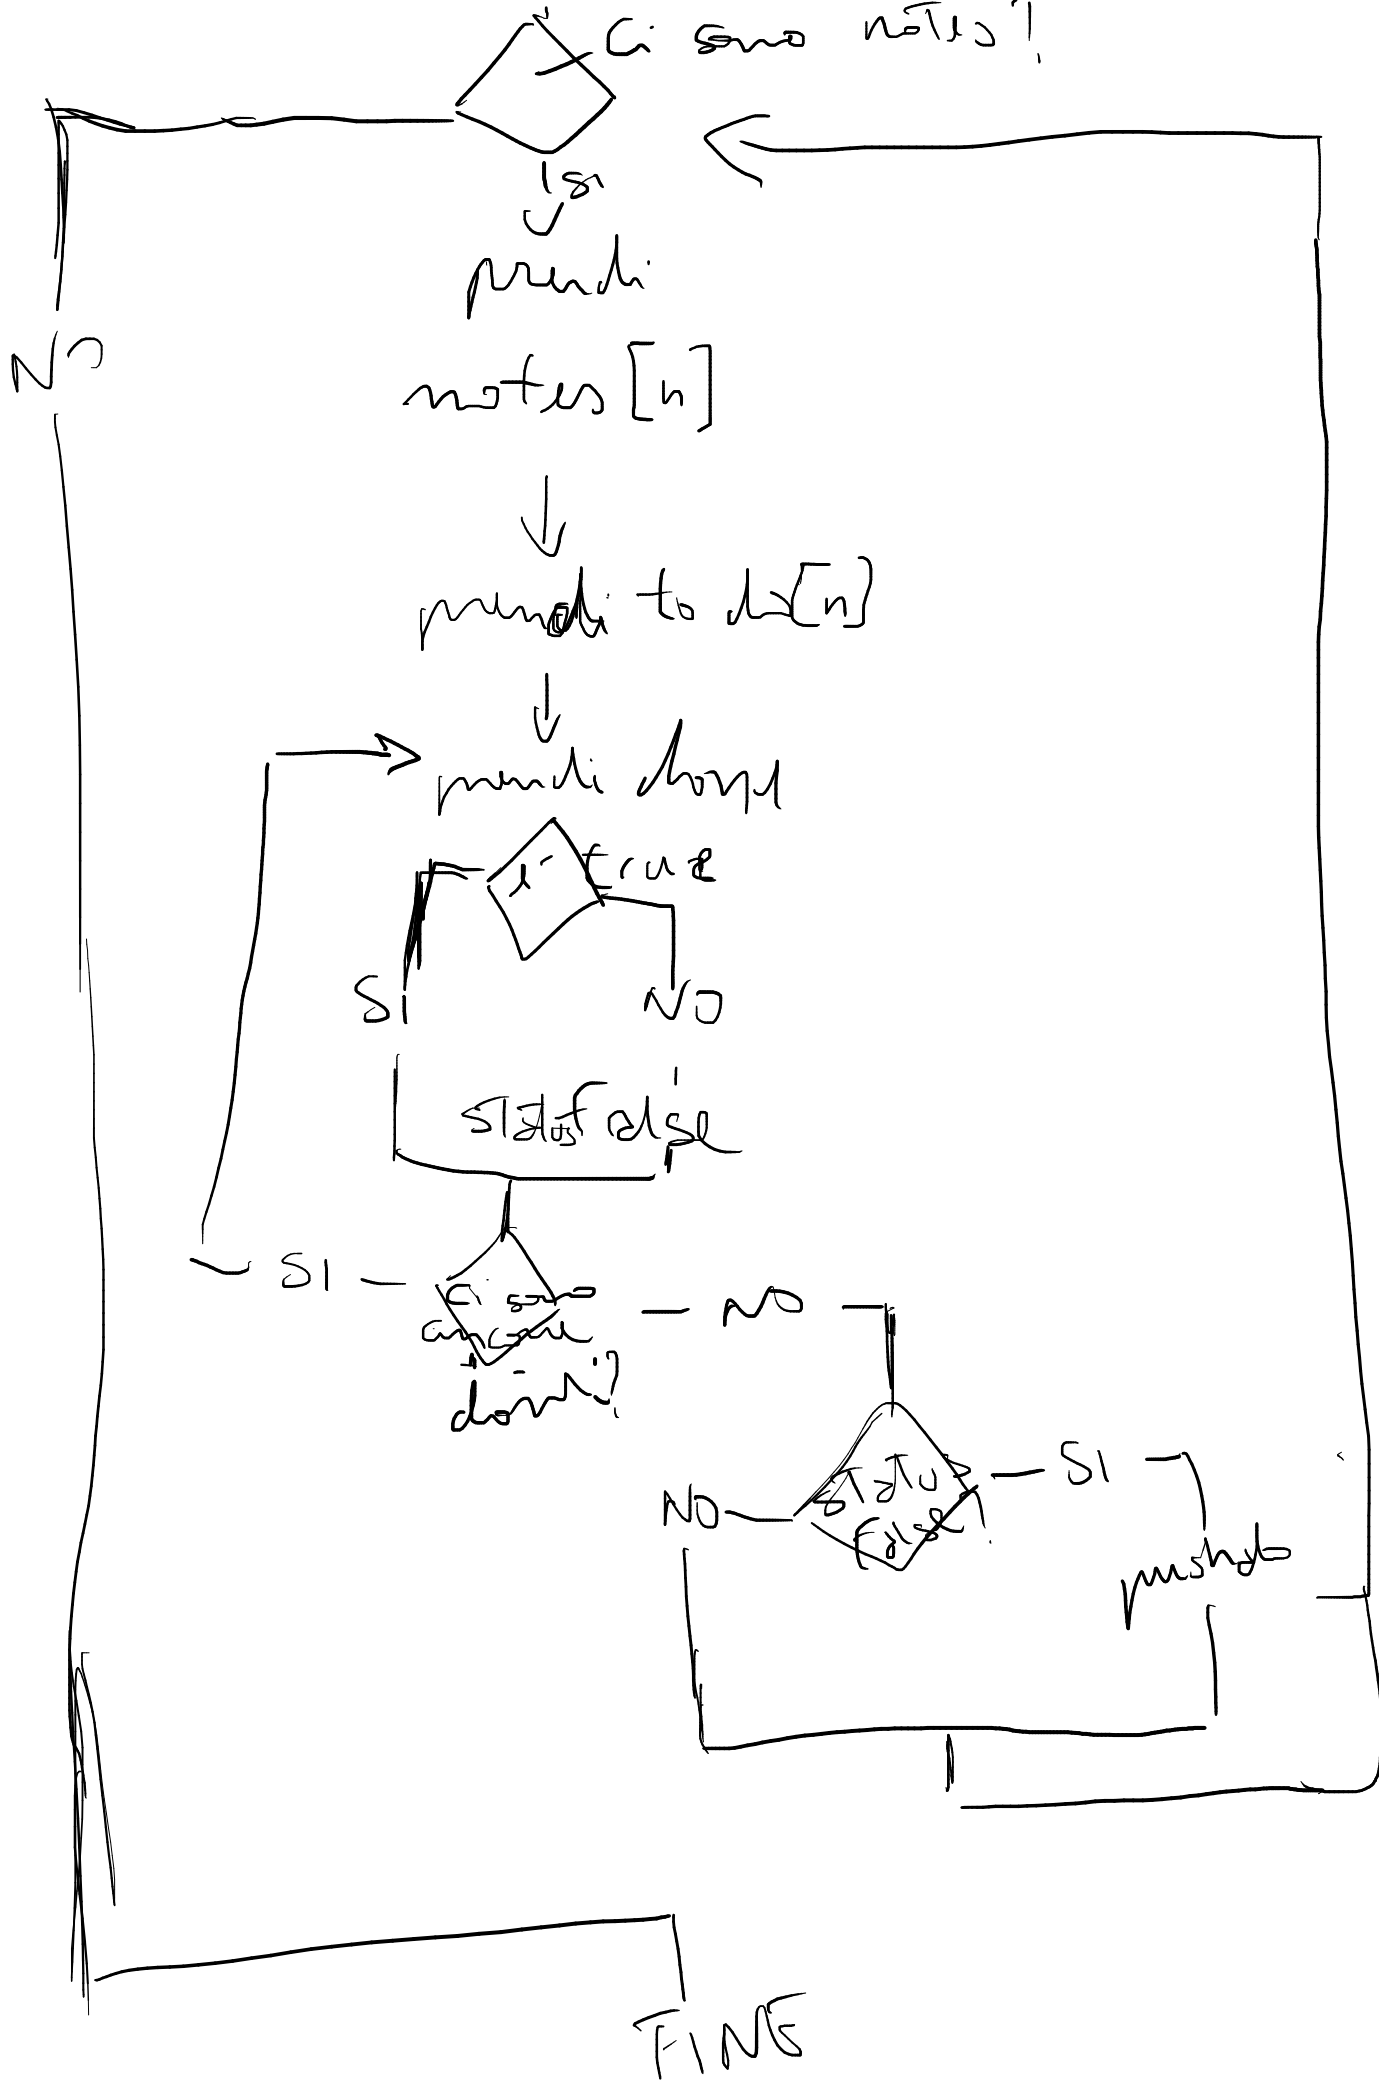 Ci sono notes?
si
prendi
NO
notes [n]
prendi to do [n]
prendi
è true
SI
NO
status False
SI
Ci sono
NO
ancora
status
SI
NO
false?
push do
FINE